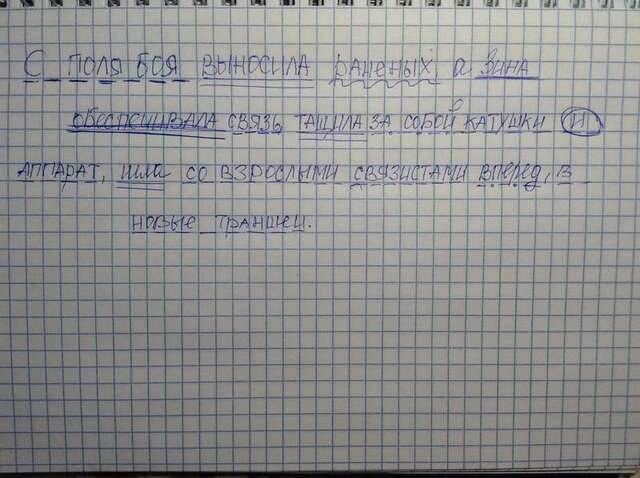 С ПОЛЯ БОЯ ВЫНОСИЛА раненых, а ЗИНА
ОБЕСПЕЧИВАЛА СВЯЗЬ, ТАЩИЛА ЗА СОБОЙ КАТУШКИ И
АППАРАТ, шла СО ВЗРОСЛЫМИ СВЯЗИСТАМИ вперед, В
новые траншеи.